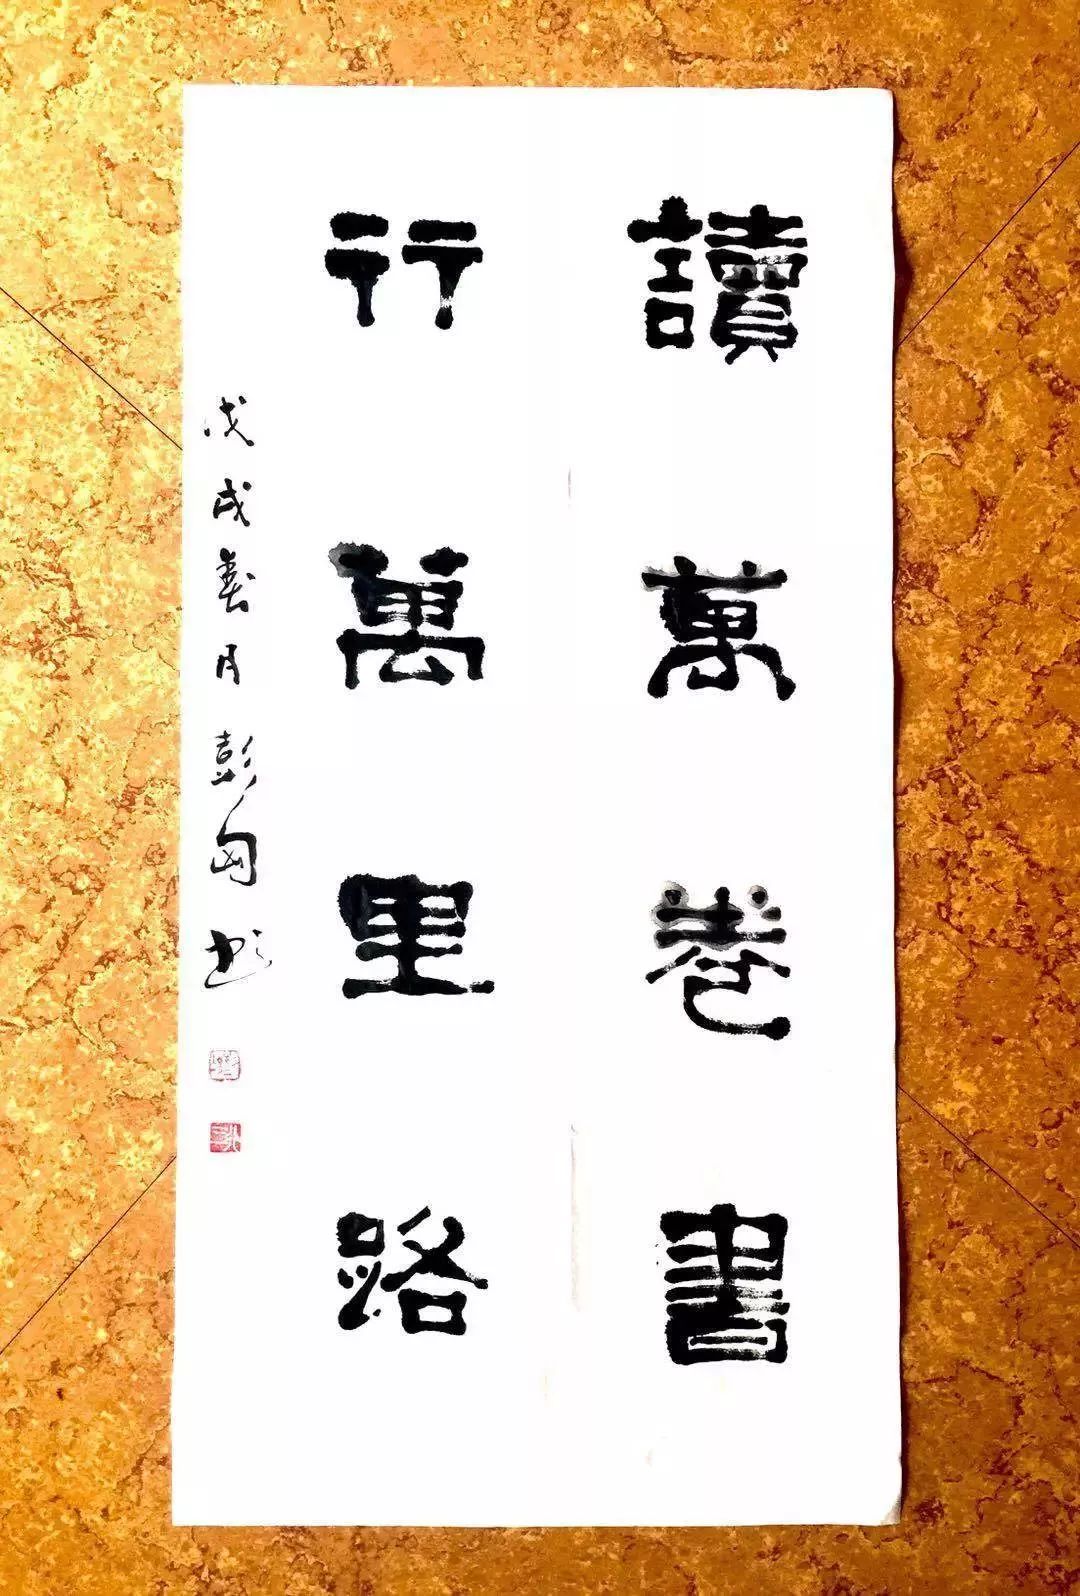 讀萬卷書
行萬里路
戊戌春月彭勾书